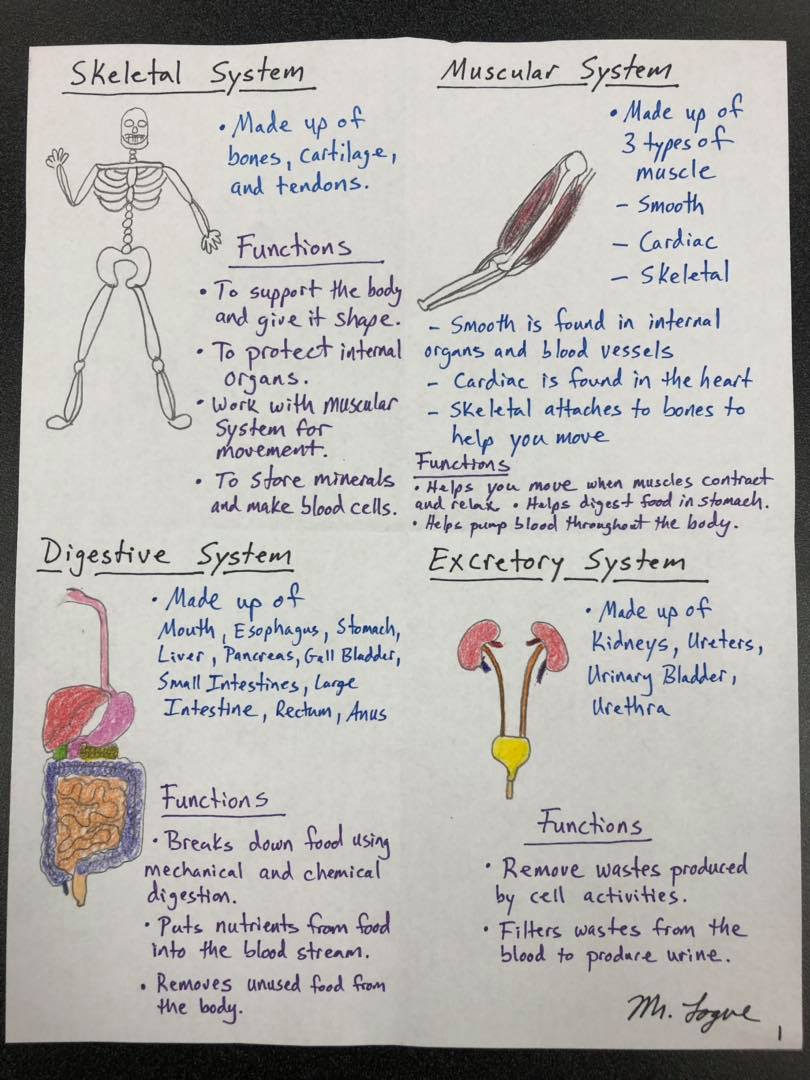 Skeletal System
• Made up of
bones, cartilage,
and tendons.
Functions
• To support the body
and give it shape.
• To protect internal
organs.
• Work with muscular
System for
movement.
• To store minerals
and make blood cells.
Muscular System
• Made up of
3 types of
muscle
- Smooth
- Cardiac
- Skeletal
- Smooth is found in internal
organs and blood vessels
- Cardiac is found in the heart
- Skeletal attaches to bones to
help you move
Functions
• Helps you move when muscles contract
and relax • Helps digest food in stomach.
• Helps pump blood throughout the body.
Digestive System
• Made up of
Mouth, Esophagus, Stomach,
Liver, Pancreas, Gall Bladder,
Small Intestines, Large
Intestine, Rectum, Anus
Functions
• Breaks down food using
mechanical and chemical
digestion.
• Puts nutrients from food
into the blood stream.
• Removes unused food from
the body.
Excretory System
• Made up of
Kidneys, Ureters,
Urinary Bladder,
Urethra
Functions
• Remove wastes produced
by cell activities.
• Filters wastes from the
blood to produre urine.
Mr. Logue
1